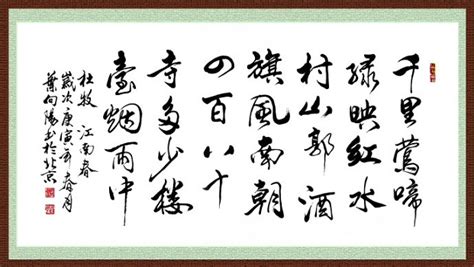 千里莺啼
绿映红水
村山郭酒
旗风南朝
四百八十
寺多少楼
臺烟雨中
杜牧 江南春
歲次庚寅年春月
葉向陽书於北京